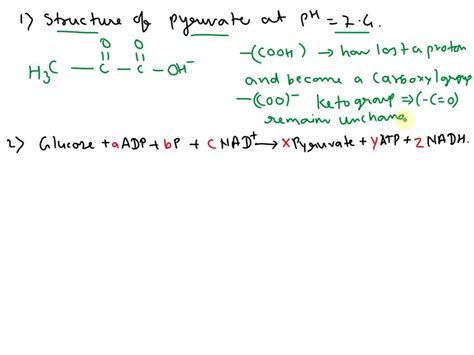 1) Structure of pyruvate at pH = 7.4.
O O
H₃C — C — C — OH⁻
—(COOH) → have lost a proton
and become a Carboxyl group
—(COO)⁻ Keto group ⇒ (-C=O)
remain unchang
2) Glucose + aADP + bP + cNAD⁺ → xPyruvate + yATP + zNADH.